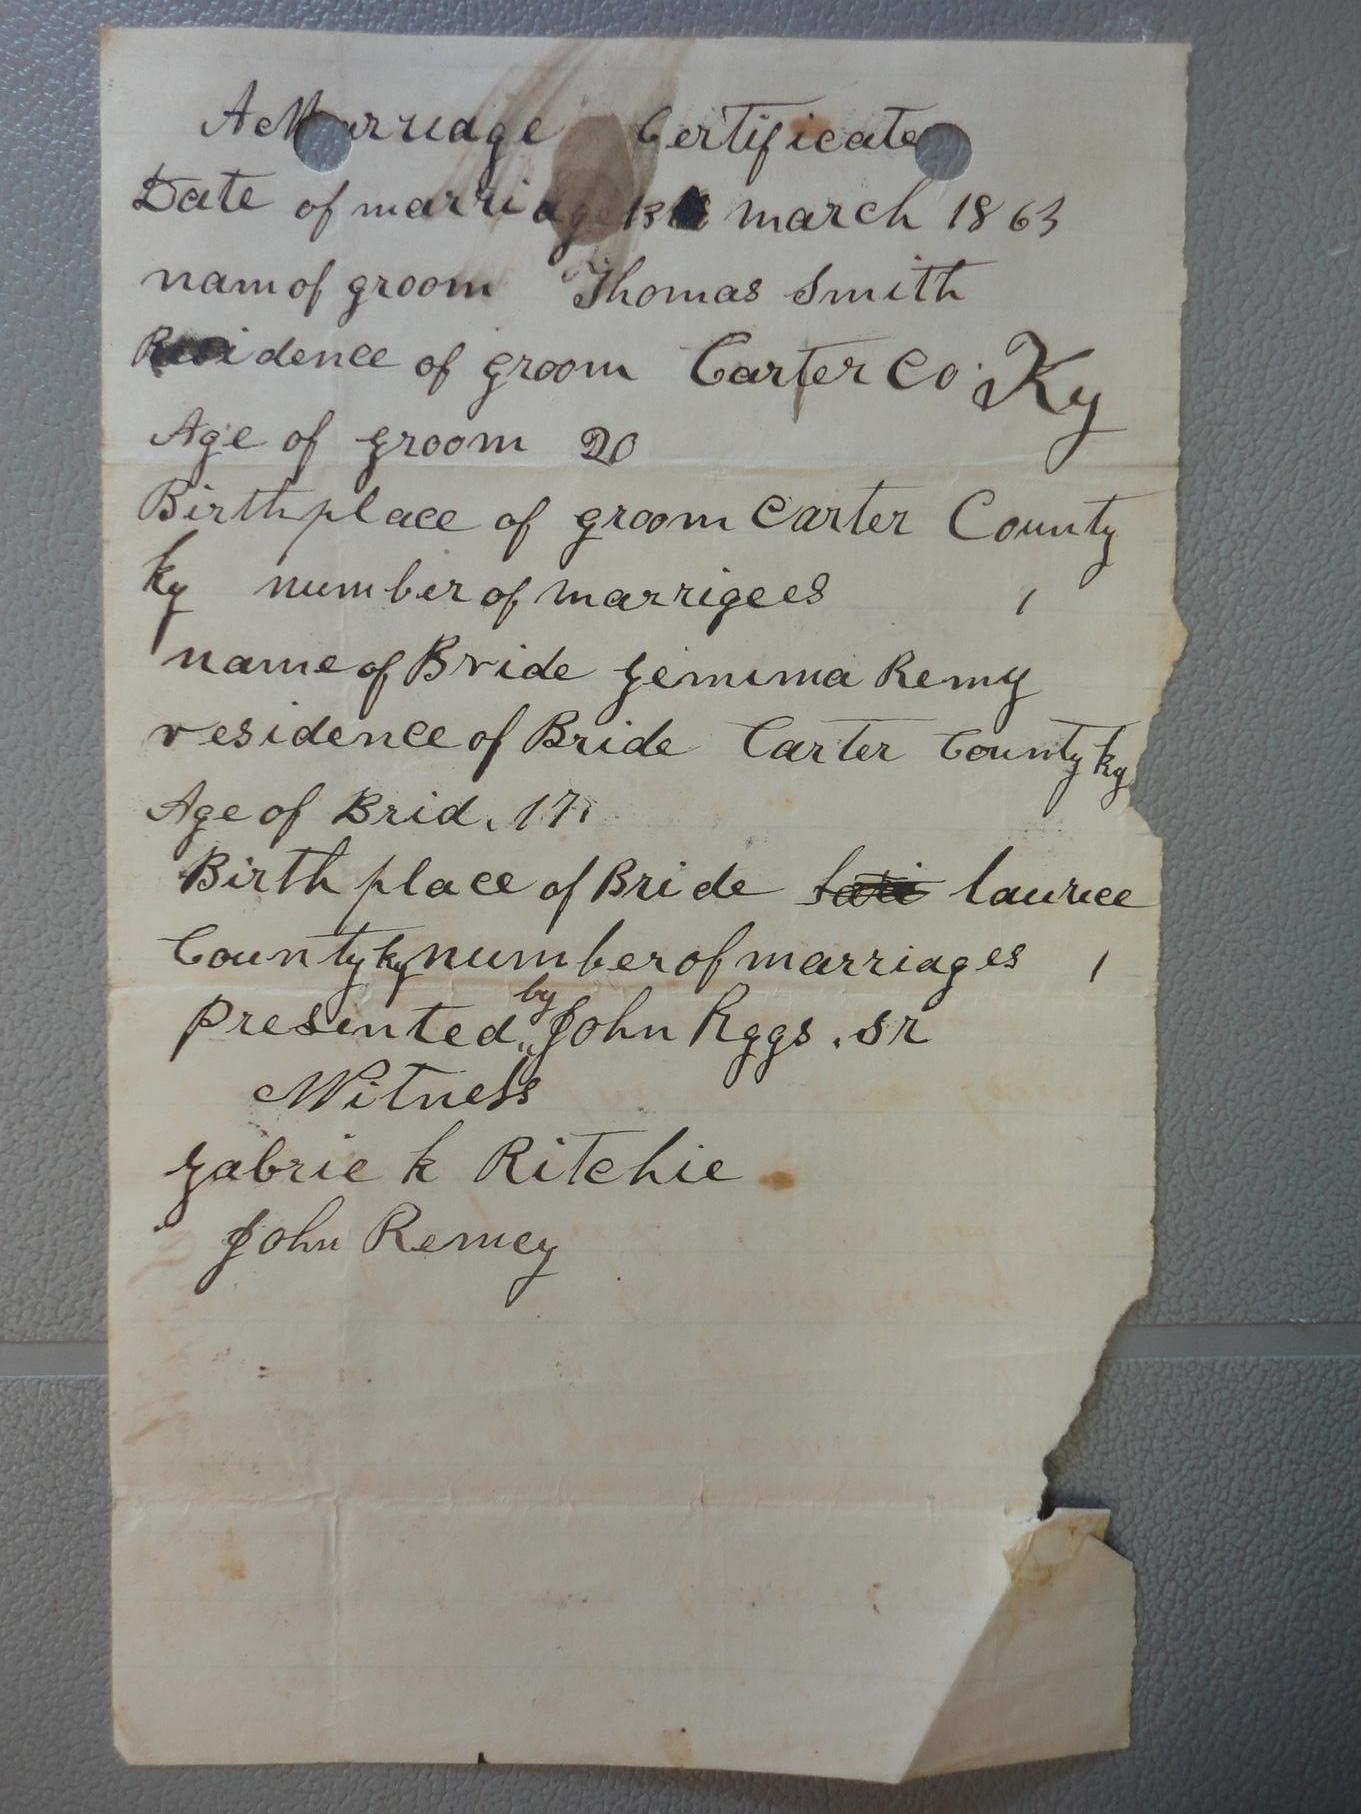 A Marriage Certificate
Date of marridge 13 march 1863
nam of groom Thomas Smith
Residence of groom Carter Co. Ky
Age of groom 20
Birth place of groom Carter County
ky number of marrigees 1
name of Bride Jemima Remy
residence of Bride Carter County ky
Age of Brid. 17
Birth place of Bride laurece
County ky number of marriages 1
Presented by John Rggs. sr
Witness
Gabrie k Ritchie
John Remey